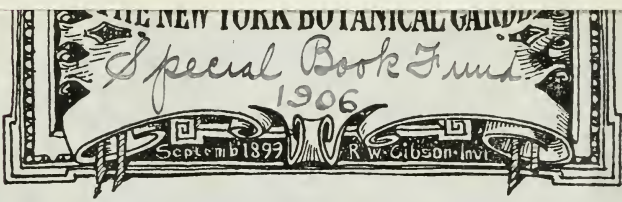 THE NEW YORK BOTANICAL GARDEN
Special Book Fund
1906
Septemb'1899 R·W·Gibson·Invt